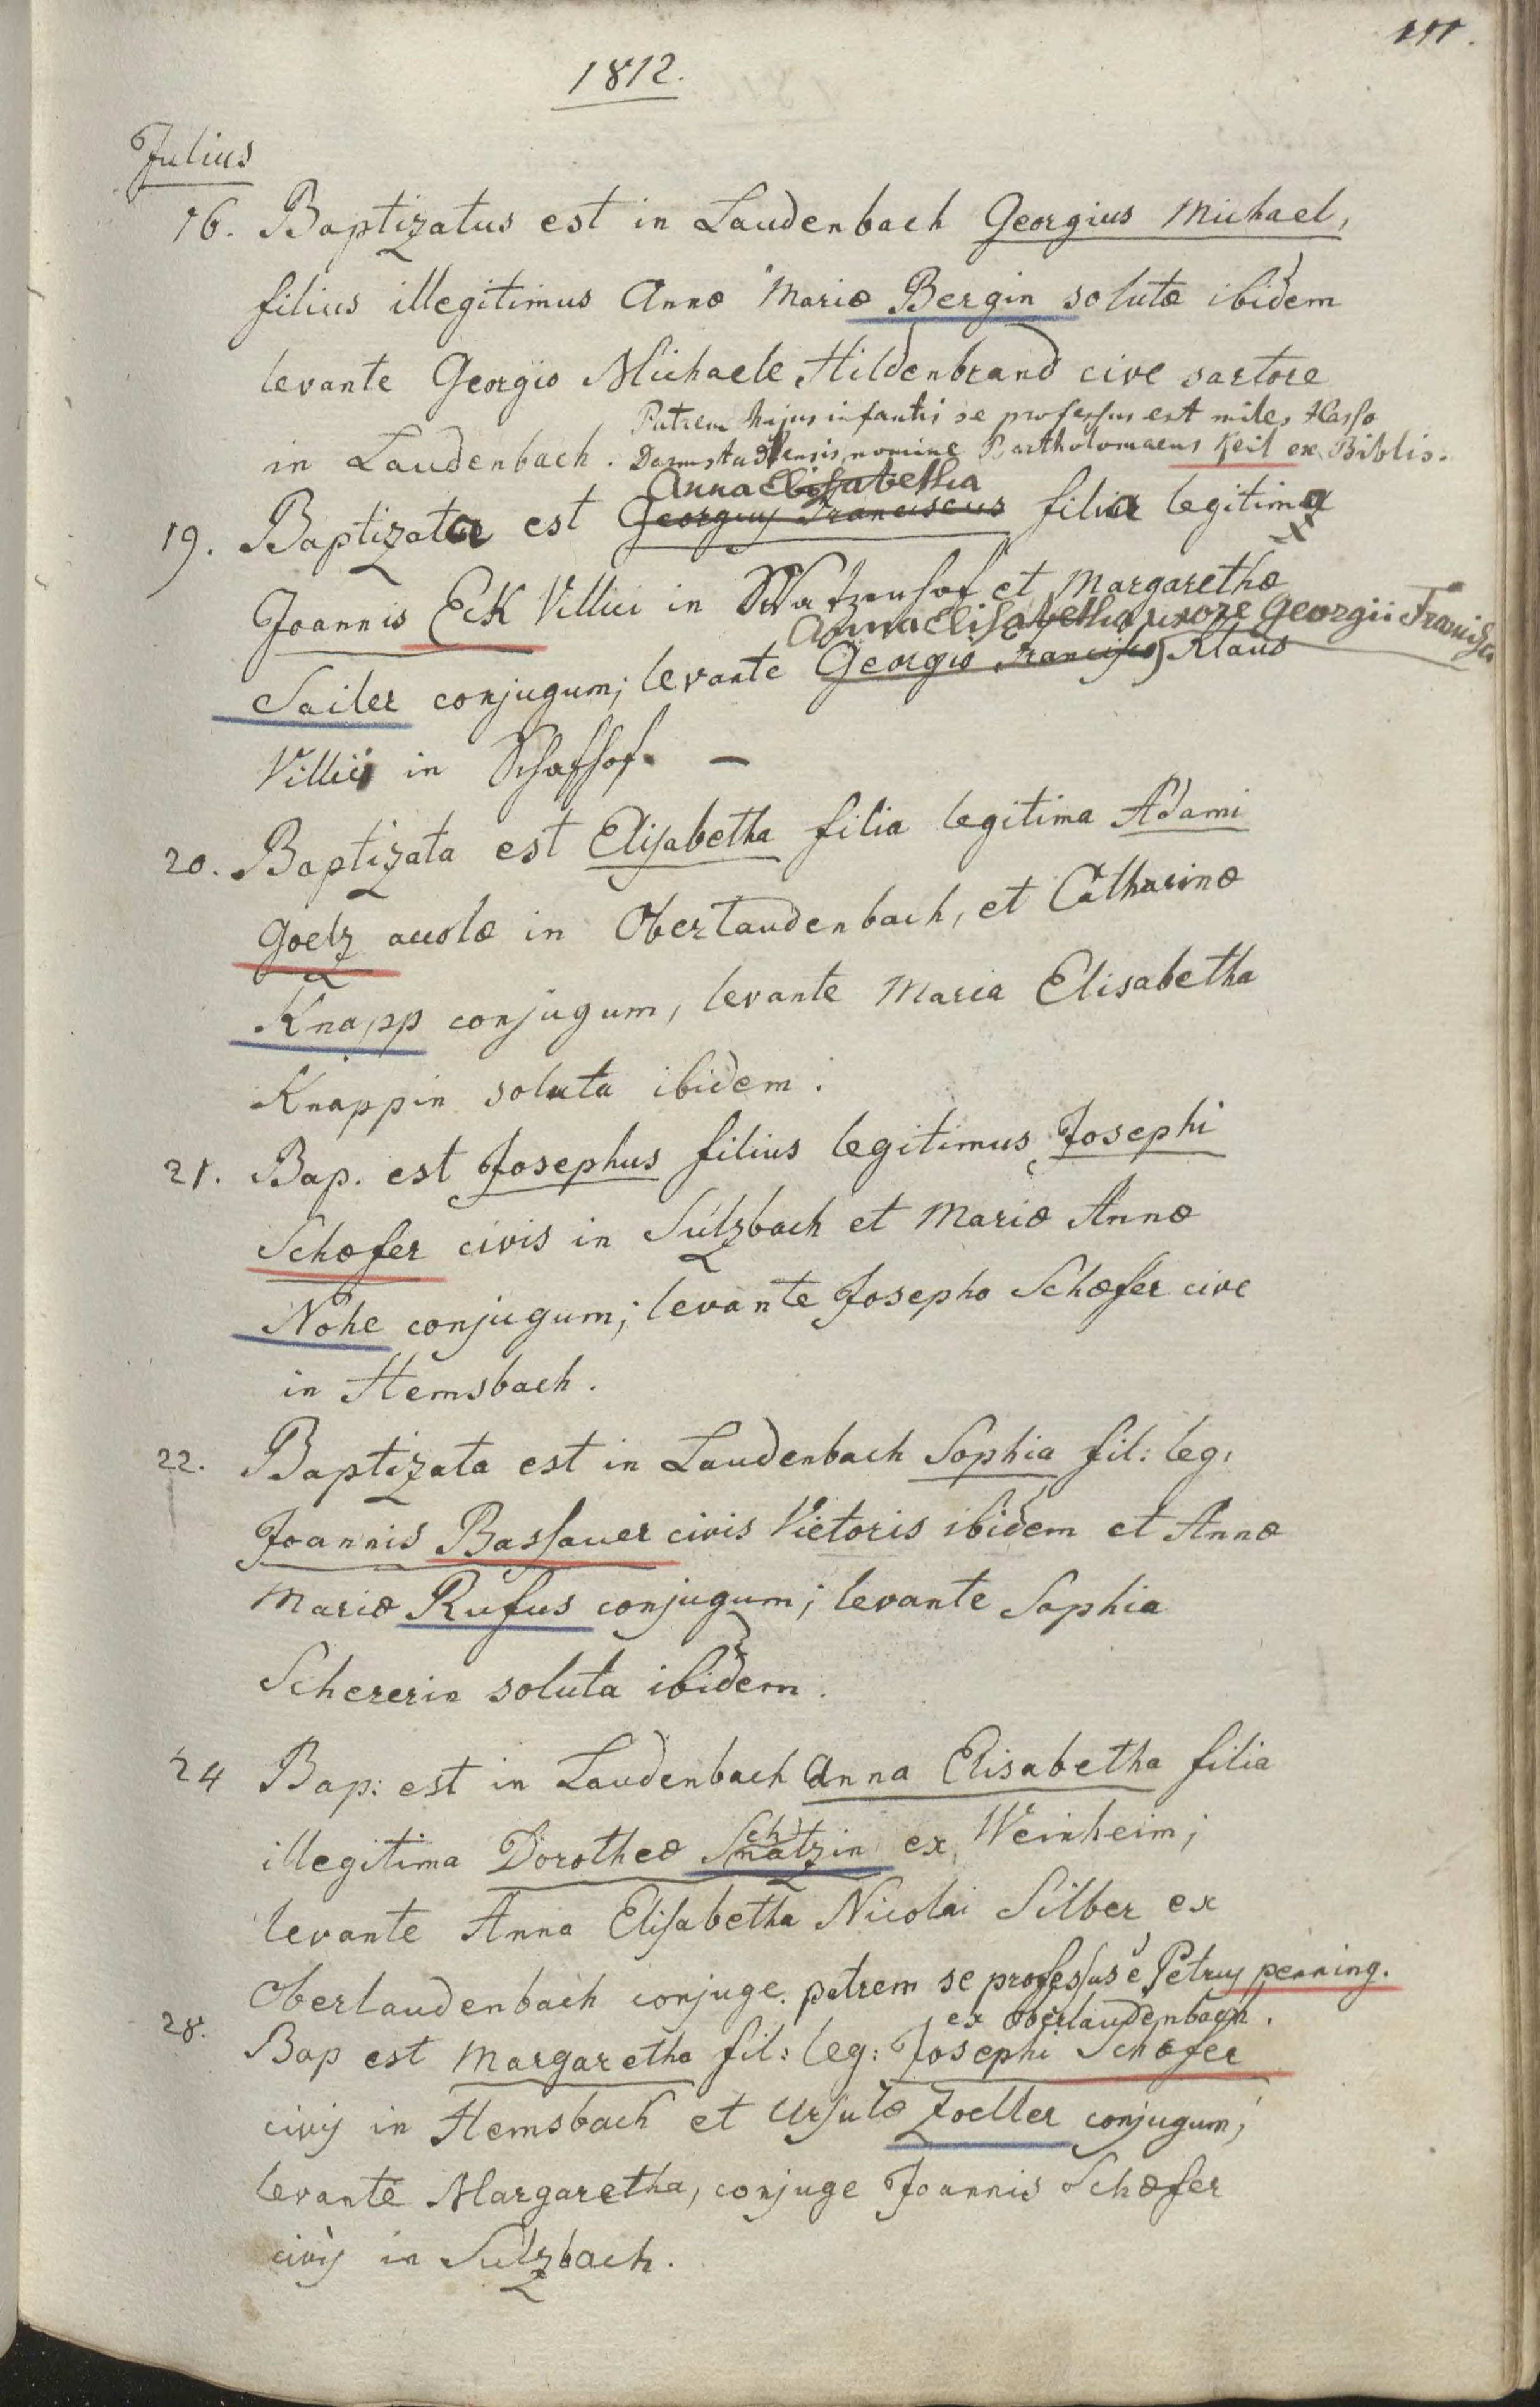 111.
1812.
Julius
16. Baptizatus est in Laudenbach Georgius Michael,
filius illegitimus Annæ Mariæ Bergin solutæ ibidem
levante Georgio Michaele Hildenbrand cive sartore
Patrem hujus infantis se professus est miles Hasso
in Laudenbach. Darmstadtensis nomine Bartholomaeus Keil ex Biblis.
Anna Elisabetha
19. Baptizata est Georgius Franciscus filia legitima
Joannis Eck Villici in Watzenhof et Margarethæ
Anna Elisabetha uxore Georgii Francisci
Sailer conjugum; levante Georgio Francisco Klaus
Villici in Schafhof. —
20. Baptizata est Elisabetha filia legitima Adami
Goelz accolæ in Oberlaudenbach, et Catharinæ
Knapp conjugum, levante Maria Elisabetha
Knappin soluta ibidem.
21. Bap. est Josephus filius legitimus Josephi
Schæfer civis in Sulzbach et Mariæ Annæ
Nohe conjugum; levante Josepho Schæfer cive
in Hemsbach.
22. Baptizata est in Laudenbach Sophia fil: leg:
Joannis Bassauer civis Vietoris ibidem et Annæ
Mariæ Rufus conjugum; levante Sophia
Schererin soluta ibidem.
24 Bap: est in Laudenbach Anna Elisabetha filia
ch
illegitima Dorotheæ Smatzin ex Weinheim;
levante Anna Elisabetha Nicolai Silber ex
Oberlaudenbach conjuge. patrem se professus ē Petrus penning.
ex Oberlaudenbach.
28. Bap est Margaretha fil: leg: Josephi Schæfer
civis in Hemsbach et Ursulæ Zoeller conjugum;
levante Margaretha, conjuge Joannis Schæfer
civis in Sulzbach.